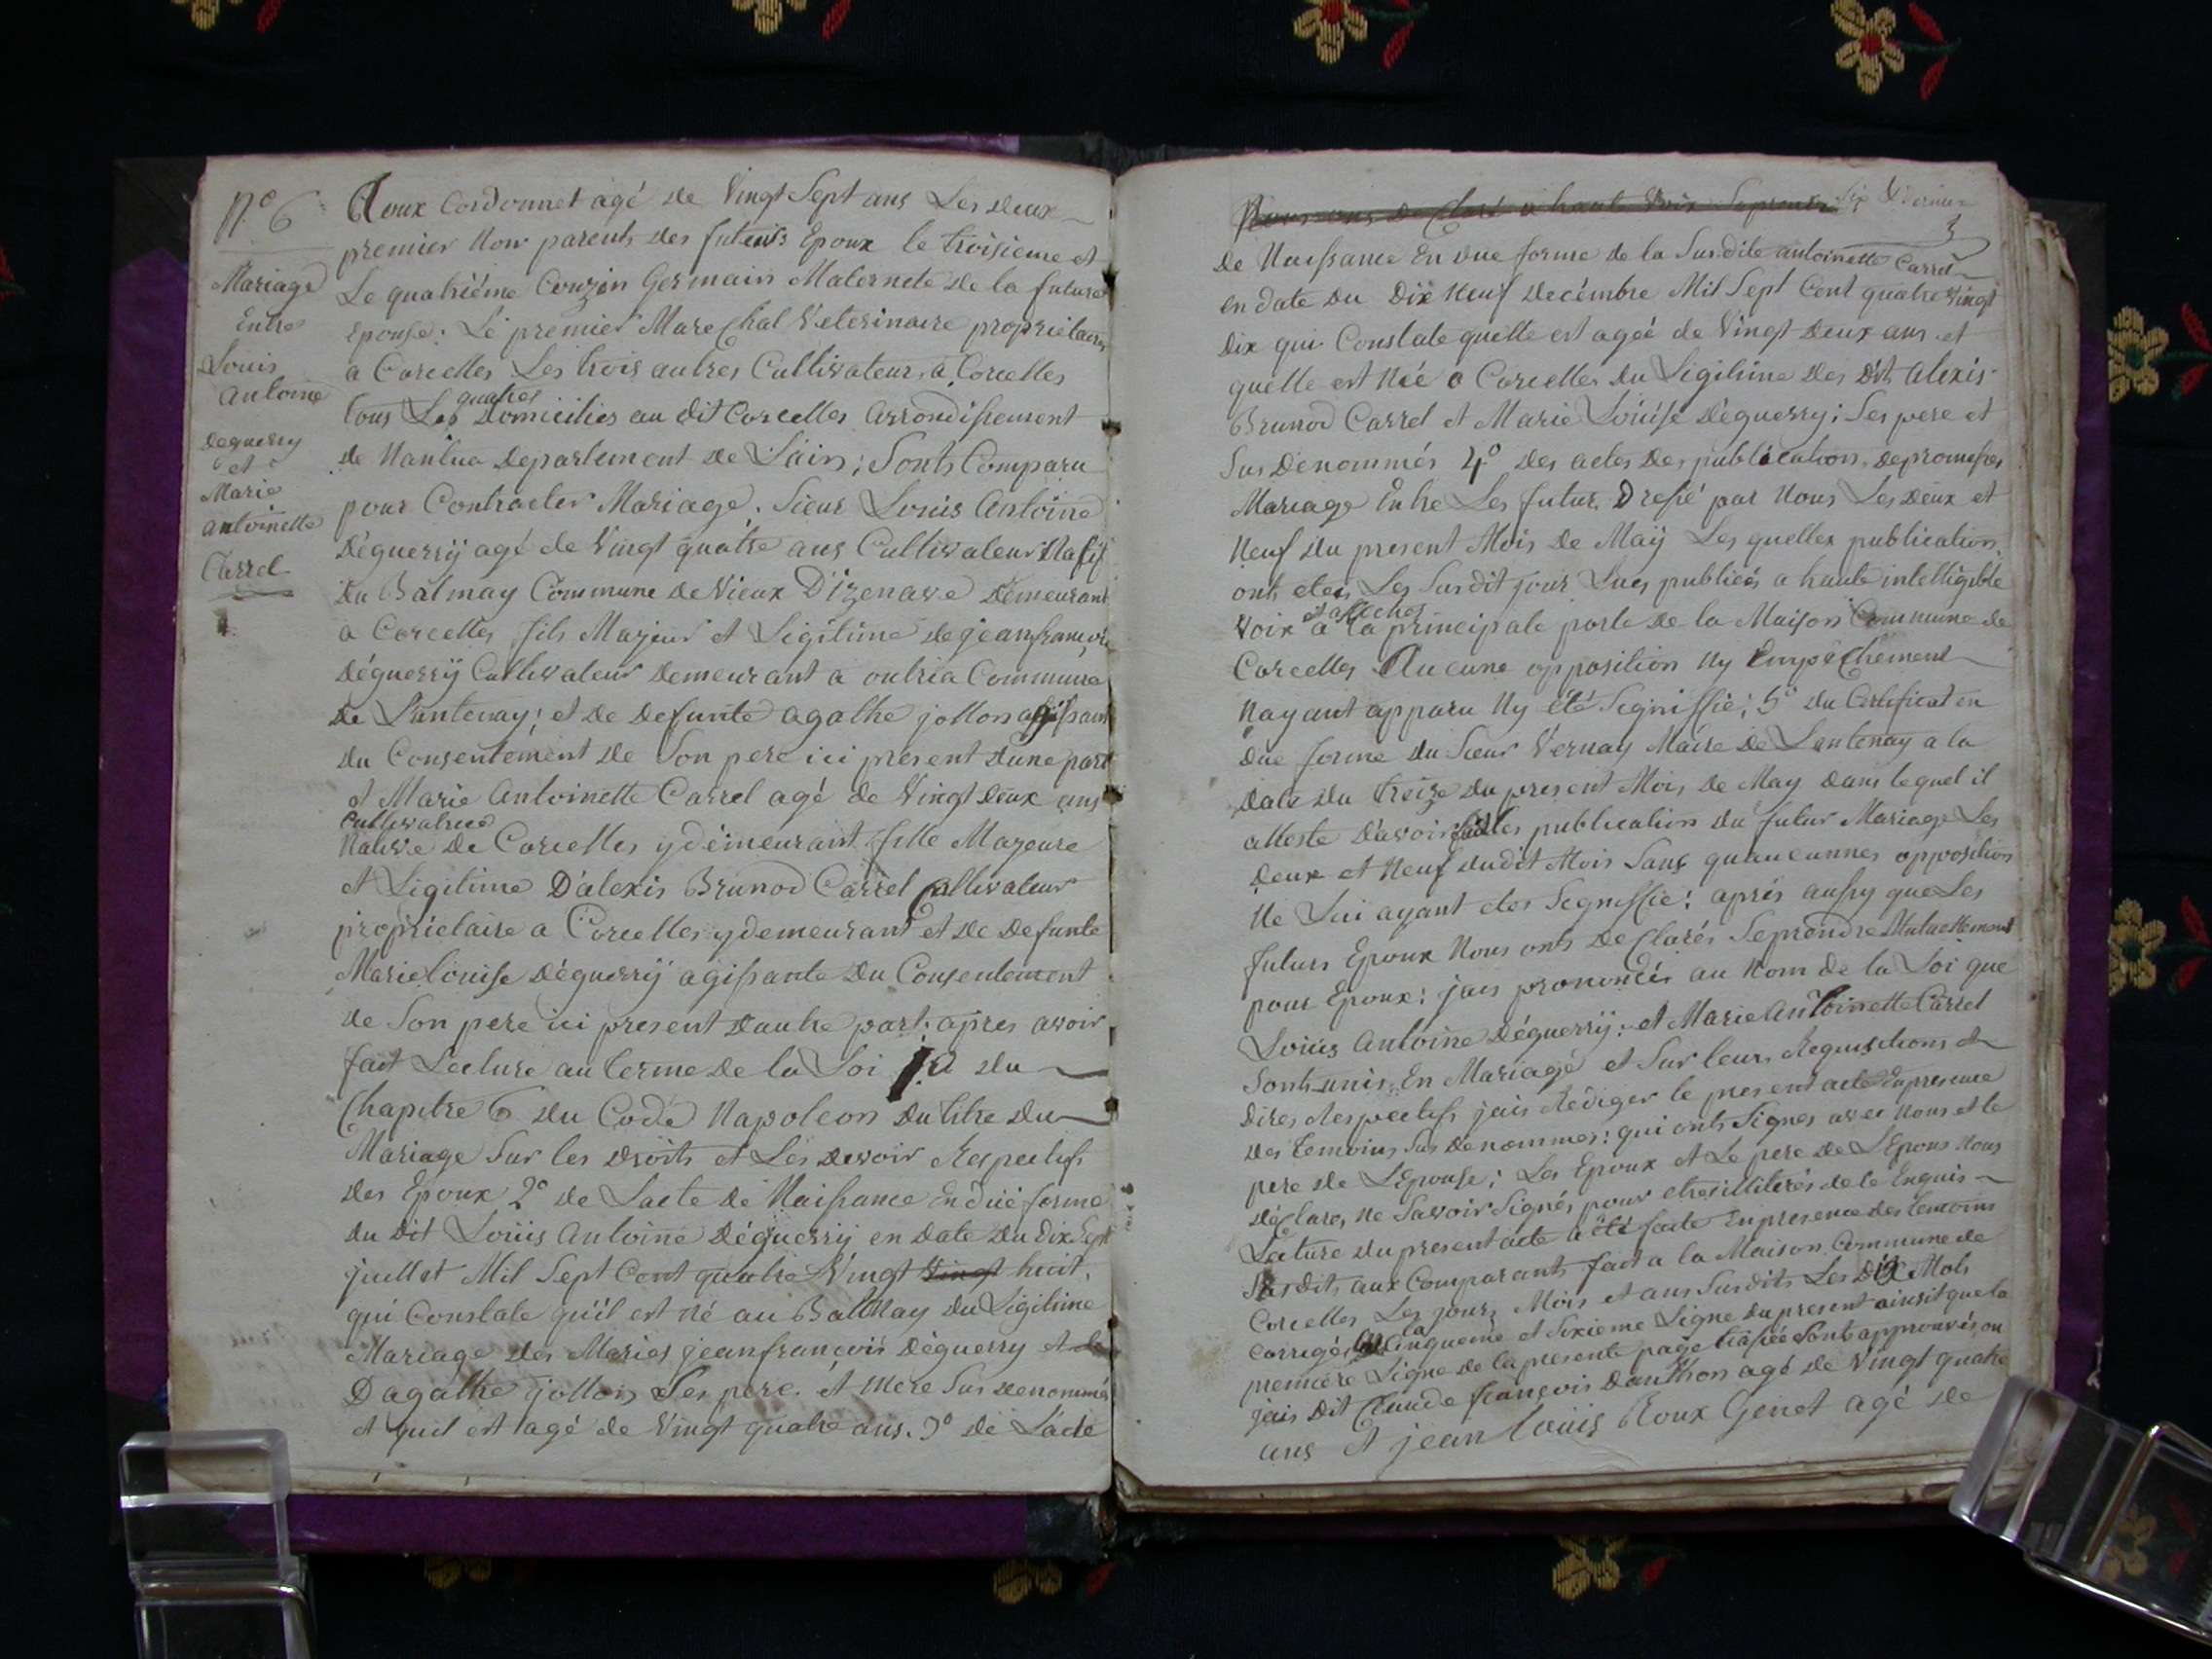 N.º 6
Mariage
Entre
Louis
Antoine
deguerry
et
Marie
antoinette
Carrel
Roux Cordonnet agé de Vingt Sept ans Les deux
premier Non parents des futeurs Epoux le troisieme et
Le quatriéme Couzin Germain Maternele de la future
Epouse: Le premier Marechal Veterinaire proprietaire
a Corcelles Les trois autres Cultivateur, a Corcelles
tous Les quatres Domiciliés au dit Corcelles arrondissement
de Nantua Departement de L'ain; Sonts Comparu
pour Contracter Mariage. Sieur Louis Antoine
Déguerrÿ agé de Vingt quatre ans Cultivateur Natif
Du Balmay Commune de Vieux D'izenave demeurant
a Corcelles fils Majeur et Legitime de jean françois
Déguerrÿ Cultivateur demeurant a outria Commune
de Lantenay; et de defunte agathe jollon agissant
du Consentement de Son pere ici present d'une part
et Marie Antoinette Carrel agé de Vingt deux ans
Cultivatrice
Native de Corcelles y démeurant fille Majeure
et Legitime D'alexis Brunod Carrel Cultivateur
propriétaire a Corcelles y demeurant et de defunte
Marie louise Déguerrÿ agissante du Consentement
de Son pere ici present d'autre part; apres avoir
fait Lecture au terme de la Loi 1º du
Chapitre 6 du Code Napoleon du titre du
Mariage Sur les droits et Les devoir Respectifs
des Epoux 2º de Lacte de Naissance En due forme
du dit Louis Antoine Déguerrÿ en date du dix Sept
juillet Mil Sept Cent quatre Vingt Vingt huit,
qui Constate qu'il est né au Balmay du Legitime
Mariage des Mariés jean francois Déguerry et de
D'agathe jollon Ses pere et Mere Sus denommés
et quil est agé de Vingt quatre ans. 3º de Lacte
3
de Naissance En due forme de la Susdite antoinette Carrel
en date du Dix Neuf decémbre Mil Sept Cent quatre Vingt
Dix qui Constate quelle est agée de Vingt Deux ans et
quelle est Née a Corcelles du Legitime des dits alexis
Brunod Carrel et Marie Louise Déguerry; Ses pere et
Sus Dénommés 4º des actes des publication de promesses
Mariage Entre Les futur. Dressé par Nous Les deux et
Neuf du present Mois de Maÿ Les quelles publication
ont etés Les Susdit jour Lues publiées a haute intelligible
Voix et affiches a la principale porte de la Maison Commune de
Corcelles Aucune opposition Ny Empéchement
Nayant apparu Ny été Segnissié; 5º du Certificat en
due forme du Sieur Vernay Maire de Lantenay a la
date du treize du present Mois de May dans lequel il
atteste d'avoir fait les publication du futur Mariage Les
Deux et Neuf dudit Mois Sans qu'aucunnes opposition
Ne Lui ayant etes Segnissié; aprés aussy que Les
futurs Epoux Nous onts declarés Se prendre Mutuellement
pour Epoux; jais prononcés au Nom de la Loi que
Louis Antoine Déguerrÿ: et Marie Antoinette Carrel
Sonts unis En Mariage et Sur leurs Requisitions et
Dires Respectifs jais Rédiger le present acte En presence
des temoins Sus denommés; qui onts Signés avec Nous et le
pere de L'Epouse; Les Epoux et Le pere de L'Epoux Nous
déclare, Ne Savoir Signés pour etres illiterés de le Enquis
Lecture du present acte a été faite En presence des temoins
Susdits aux Comparants fait a la Maison Commune de
Corcelles Les jours, Mois et ans Susdits Les dix Mots
corrigés la Cinquieme et Sixieme Ligne du present ainsit que la
premiere Ligne de la presente page Rassée Sont approuvés ou
jais dit Claude françois Danthon agé de Vingt quatre
ans et jean Louis Roux Genet agé de